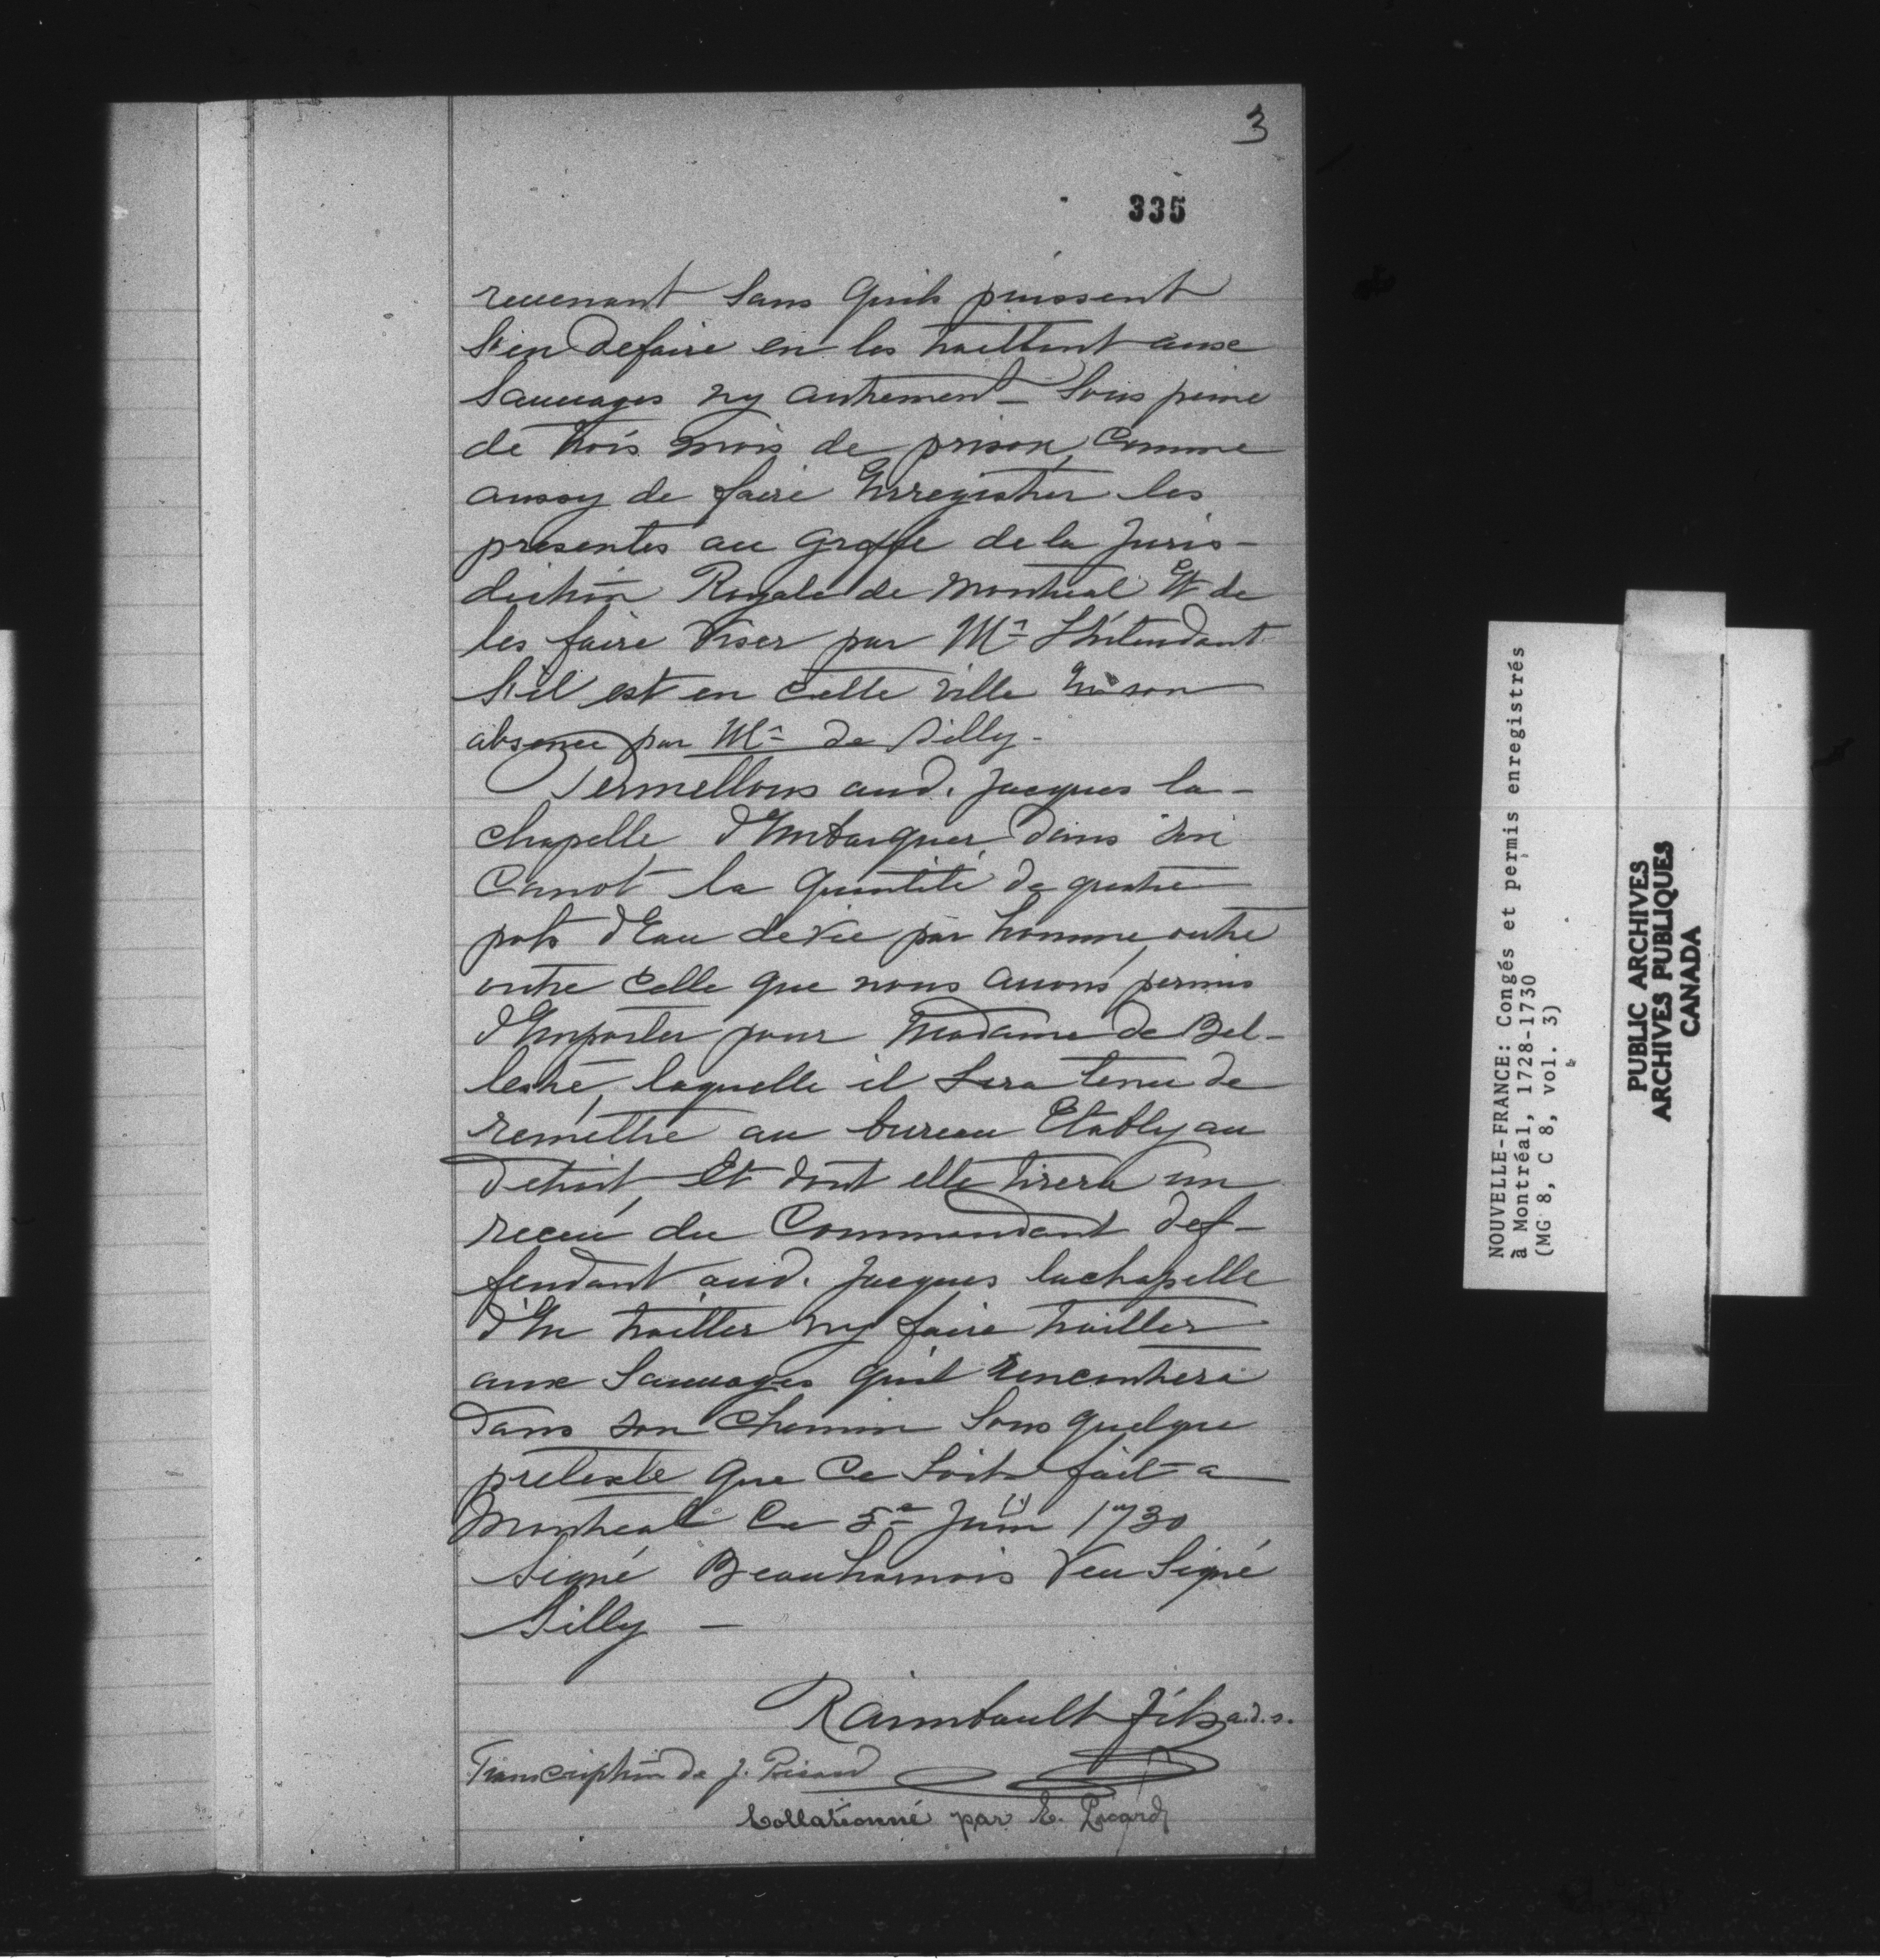 3
335
reuenant Sans quils puissent
S'en defaire en les traittant aux
Sauuages ny autrement – Sous peine
de trois mois de prison, Comme
aussy de faire Enregistrer les
presentes au greffe de la Juris-
diction Royale de Montreal Et de
les faire Viser par Mr. L'Intendant
S'il est en cette ville En son
absence par Mr. de Silly.
Permettons aud. Jacques la-
chapelle d'Embarquer dans son
Canot la quantité de quatre
pots d'Eau de vie par homme, outre
outre Celle que nous auons permis
d'Emporter pour Madame de Bel-
lestre, laquelle il Sera tenu de
remettre au bureau Etably au
detroit Et dont elle tirera un
receu du Commandant def-
fendant aud. Jacques lachapelle
d'En traitter ny faire traitter
aux Sauuages qu'il rencontrera
dans son Chemin Sous quelque
pretexte que Ce Soit fait a
Montreal Ce 5e Juin 1730
Signé Beauharnois Veu Signé
Silly –
Raimbault fils a.d.s.
Transcription de J. Picard
Collationné par E. Picard
NOUVELLE-FRANCE: Congés et permis enregistrés
à Montréal, 1728-1730
(MG 8, C 8, vol. 3)
PUBLIC ARCHIVES
ARCHIVES PUBLIQUES
CANADA